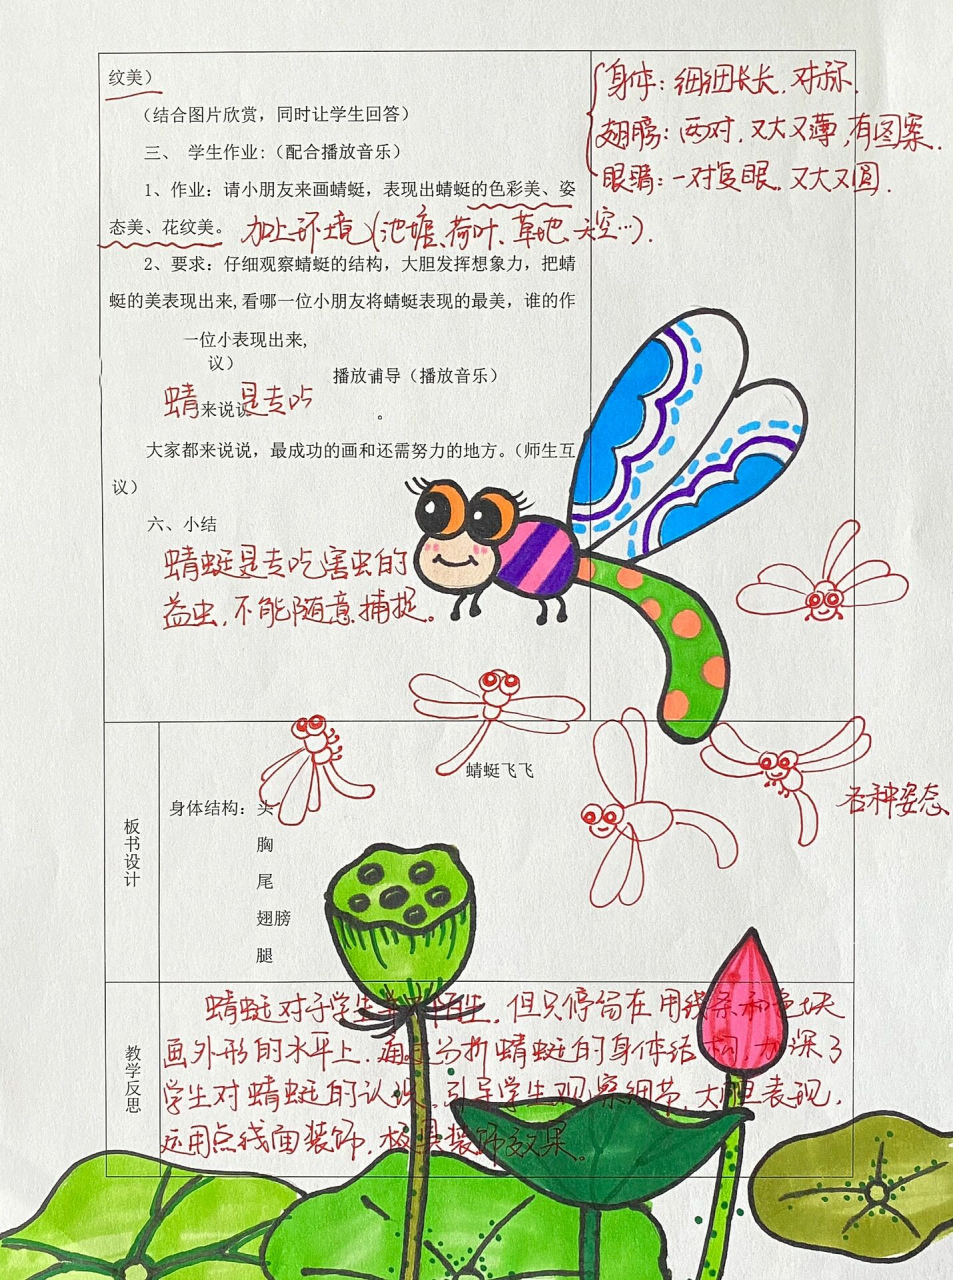 纹美）
（结合图片欣赏，同时让学生回答）
三、 学生作业：（配合播放音乐）
1、作业：请小朋友来画蜻蜓，表现出蜻蜓的色彩美、姿
态美、花纹美。 加上环境（池塘、荷叶、草地、天空…）.
2、要求：仔细观察蜻蜓的结构，大胆发挥想象力，把蜻
蜓的美表现出来,看哪一位小朋友将蜻蜓表现的最美，谁的作
一位小表现出来,
议）
播放辅导（播放音乐）
蜻来说说是去吃
。
大家都来说说，最成功的画和还需努力的地方。（师生互
议）
六、小结
蜻蜓是去吃害虫的
益虫，不能随意捕捉。
身体：细细长长，对称.
翅膀：两对，又大又薄，有图案.
眼睛：一对复眼，又大又圆.
板书设计
蜻蜓飞飞
身体结构：头
胸
尾
翅膀
腿
各种姿态
教学反思
蜻蜓对于学生并不陌生，但只停留在用线条和色块
画外形的水平上，通过分析蜻蜓的身体结构，加深了
学生对蜻蜓的认识，引导学生观察细节，大胆表现，
运用点线面装饰，极具装饰效果。